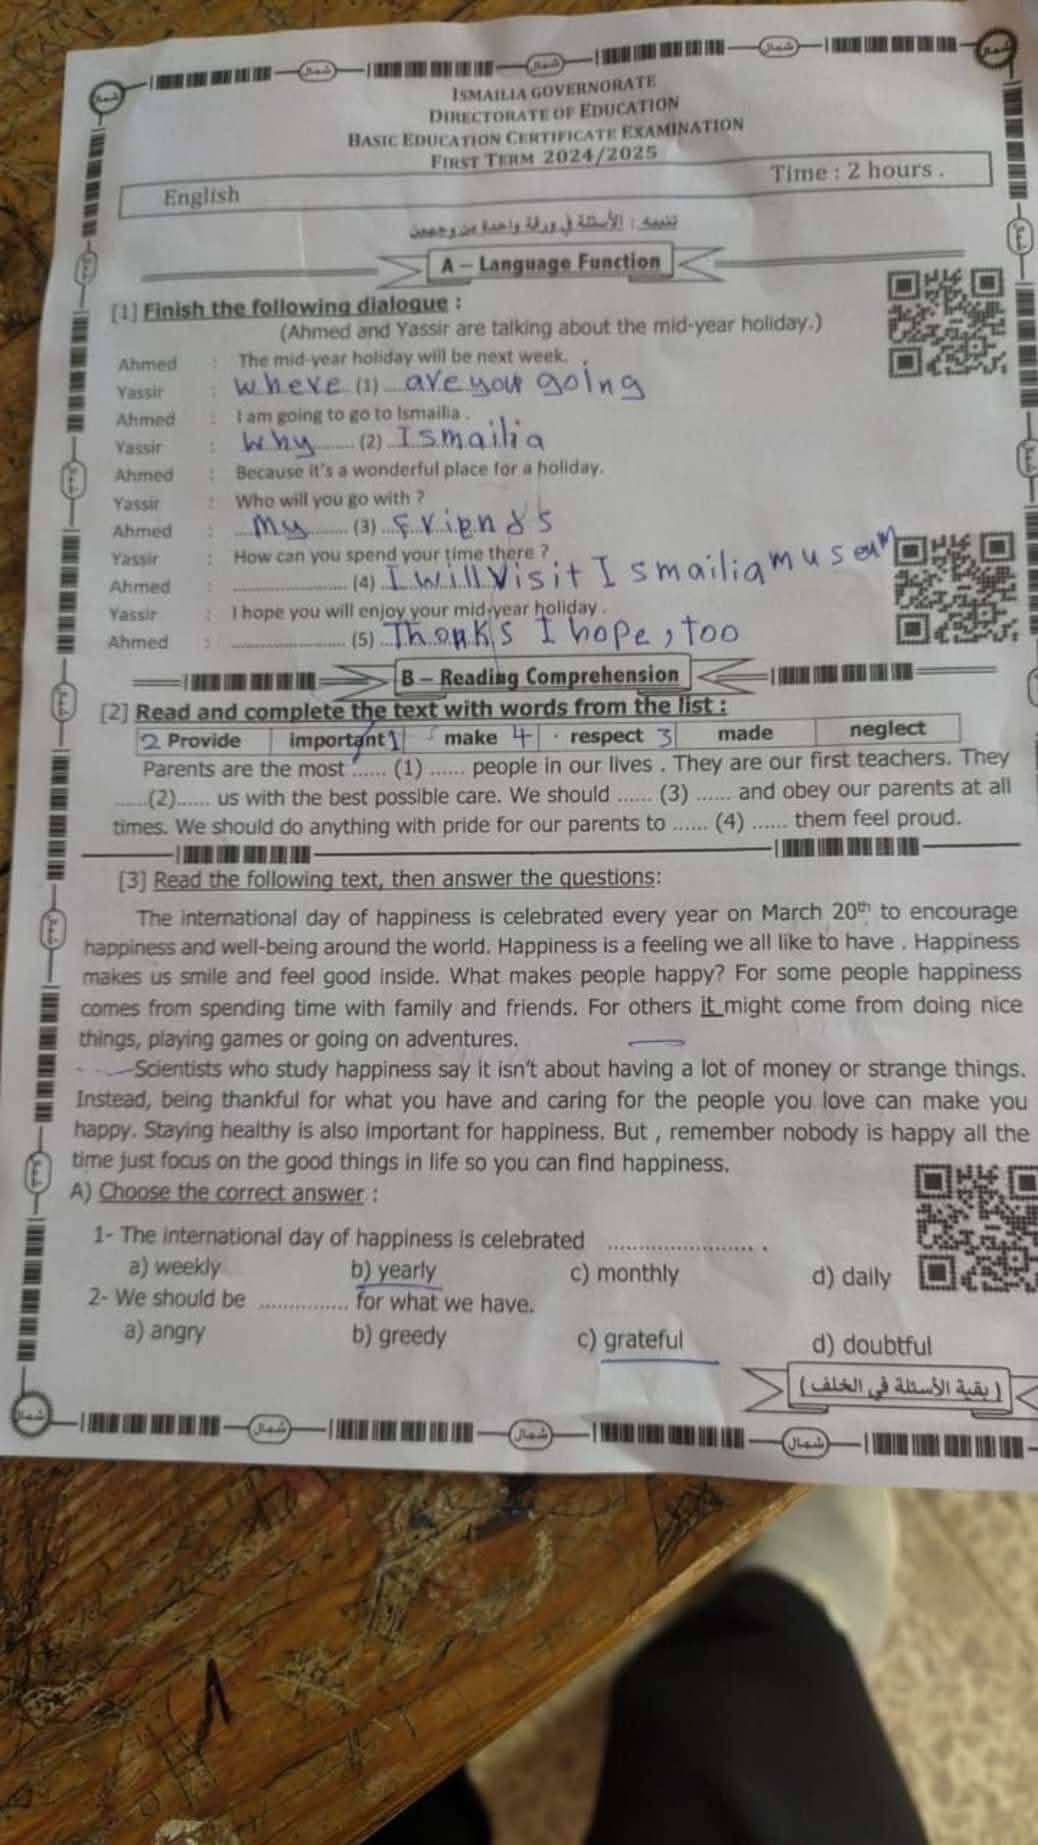 ISMAILIA GOVERNORATE
DIRECTORATE OF EDUCATION
BASIC EDUCATION CERTIFICATE EXAMINATION
FIRST TERM 2024/2025
English Time : 2 hours .
تنبيه : الأسئلة في ورقة واحدة من وجهين
A – Language Function
[1] Finish the following dialogue :
(Ahmed and Yassir are talking about the mid-year holiday.)
Ahmed : The mid-year holiday will be next week.
Yassir : where (1) are you going
Ahmed : I am going to go to Ismailia .
Yassir : why ........ (2) Ismailia
Ahmed : Because it's a wonderful place for a holiday.
Yassir : Who will you go with ?
Ahmed : My ........ (3) friends
Yassir : How can you spend your time there ?
Ahmed : .................... (4) I will visit Ismailia museum
Yassir : I hope you will enjoy your mid-year holiday .
Ahmed : .................... (5) Thanks I hope, too
B – Reading Comprehension
[2] Read and complete the text with words from the list :
2 Provide important 1 make 4 respect 3 made neglect
Parents are the most ...... (1) ...... people in our lives . They are our first teachers. They
......(2)...... us with the best possible care. We should ...... (3) ...... and obey our parents at all
times. We should do anything with pride for our parents to ...... (4) ...... them feel proud.
[3] Read the following text, then answer the questions:
The international day of happiness is celebrated every year on March 20th to encourage
happiness and well-being around the world. Happiness is a feeling we all like to have . Happiness
makes us smile and feel good inside. What makes people happy? For some people happiness
comes from spending time with family and friends. For others it might come from doing nice
things, playing games or going on adventures.
Scientists who study happiness say it isn't about having a lot of money or strange things.
Instead, being thankful for what you have and caring for the people you love can make you
happy. Staying healthy is also important for happiness. But , remember nobody is happy all the
time just focus on the good things in life so you can find happiness.
A) Choose the correct answer :
1- The international day of happiness is celebrated ........................ .
a) weekly b) yearly c) monthly d) daily
2- We should be ............... for what we have.
a) angry b) greedy c) grateful d) doubtful
( بقية الأسئلة في الخلف )